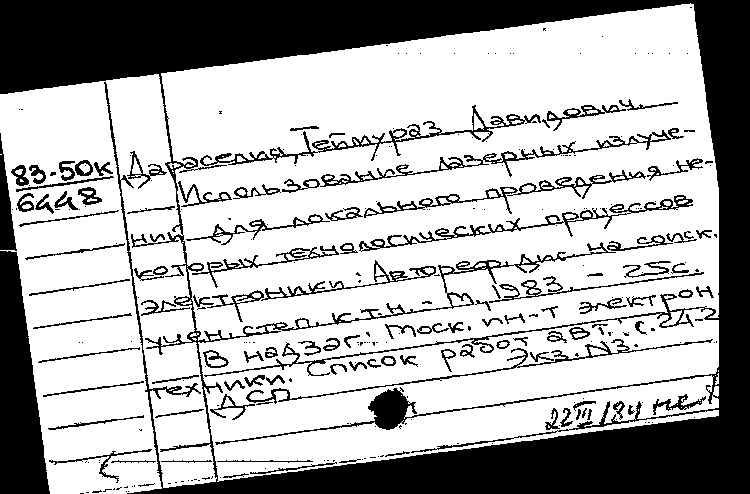 83-50к
6448
Дараселия, Теймураз Давидович.
Использование лазерных излуче-
ний для локального проведения не-
которых технологических процессов
электроники: Автореф. дис. на соиск.
учен. степ. к.т.н. - М., 1983. - 25с.
В надзаг.: Моск. ин-т электрон.
техники. Список работ авт.: с.24-2
ДСП Экз. N3.
22III/84 нет